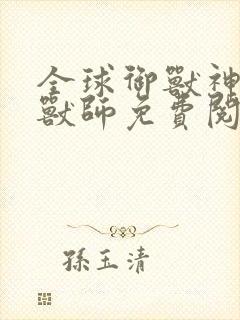 全球御獸神
獸師免費閱
孫玉清